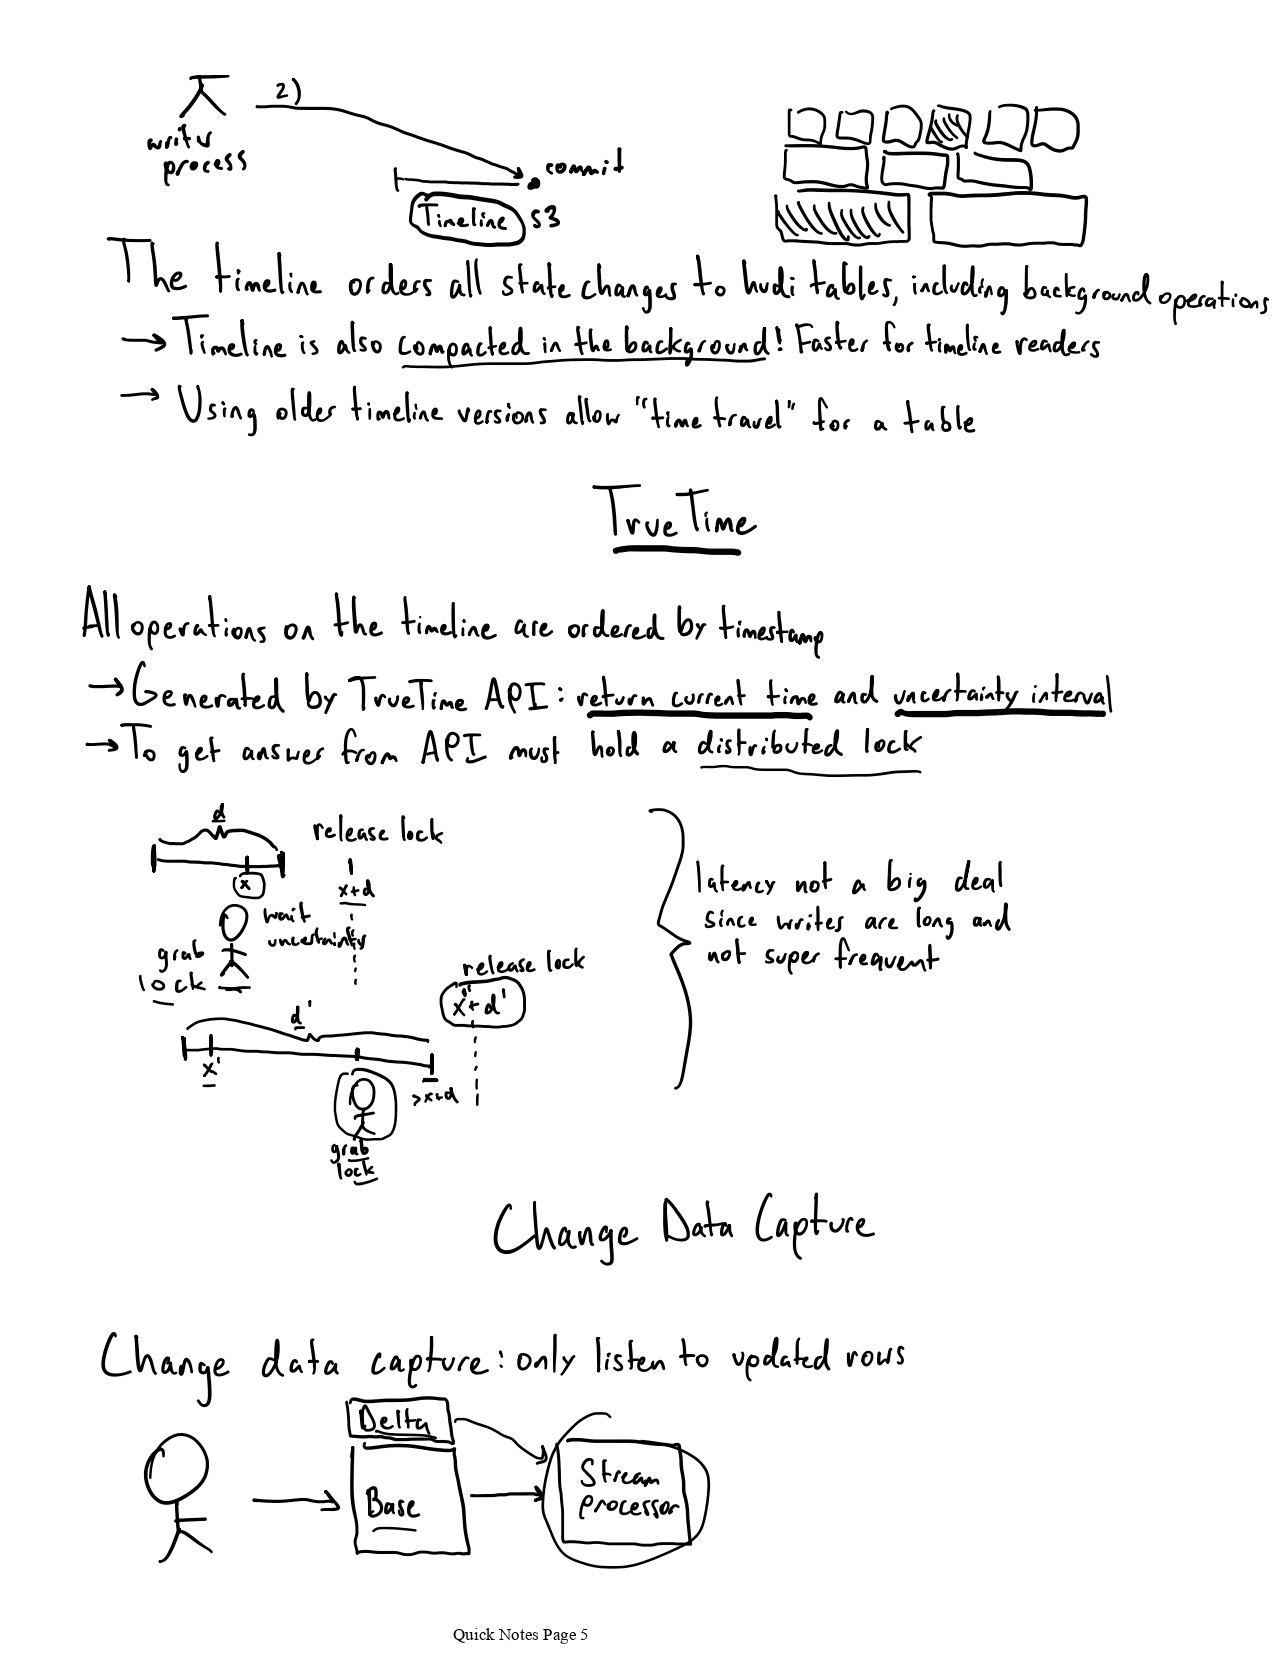 2)
writer
process
commit
Timeline S3
The timeline orders all state changes to hudi tables, including background operations
→ Timeline is also compacted in the background! Faster for timeline readers
→ Using older timeline versions allow "time travel" for a table
TrueTime
All operations on the timeline are ordered by timestamp
→ Generated by TrueTime API: return current time and uncertainty interval
→ To get answer from API must hold a distributed lock
d
release lock
x
x+d
wait
uncertainty
grab
lock
release lock
x'+d'
d'
x'
>x+d
grab
lock
latency not a big deal
since writes are long and
not super frequent
Change Data Capture
Change data capture: only listen to updated rows
Delta
Base
Stream
processor
Quick Notes Page 5